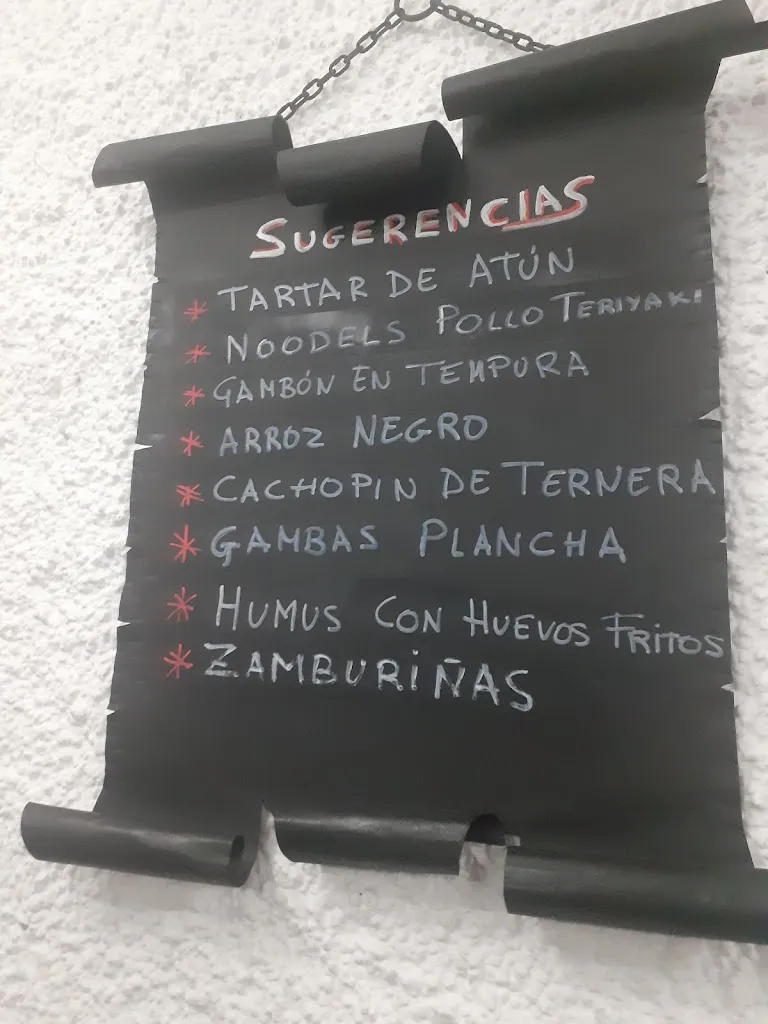 SUGERENCIAS
* TARTAR DE ATÚN
* NOODELS POLLO TERIYAKI
* GAMBÓN EN TEMPURA
* ARROZ NEGRO
* CACHOPIN DE TERNERA
* GAMBAS PLANCHA
* HUMUS CON HUEVOS FRITOS
* ZAMBURIÑAS